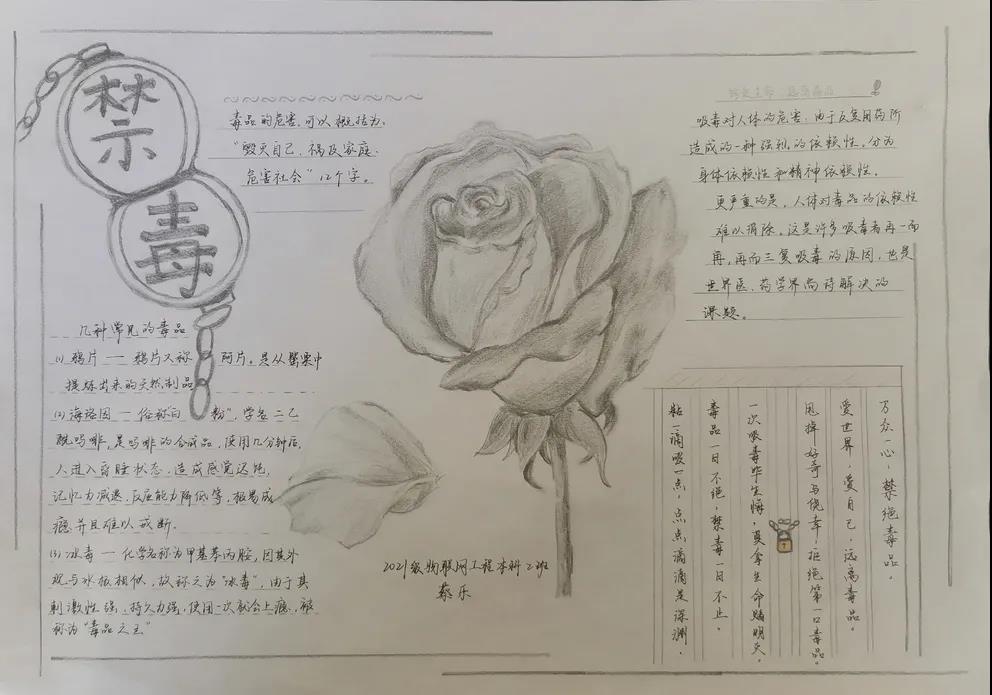 禁
毒
毒品的危害，可以概括为，
“毁灭自己，祸及家庭，
危害社会”12个字。
几种常见的毒品
(1) 鸦片 — 鸦片又称 阿片，是从罂粟中
提炼出来的天然制品
(2) 海洛因 — 俗称白 粉”，学名二乙
酰吗啡，是吗啡的合成品，使用几分钟后，
人进入昏睡状态，造成感觉迟钝，
记忆力减退，反应能力降低等，极易成
瘾并且难以戒断．
(3) 冰毒 — 化学名称为甲基苯丙胺，因其外
观与冰极相似，故称之为“冰毒”，由于其
刺激性强，持久力强，使用一次就会上瘾，被
称为“毒品之王”
2021级物联网工程本科2班
蔡乐
吸毒对人体的危害：由于反复用药所
造成的一种强烈的依赖性，分为
身体依赖性和精神依赖性，
更严重的是，人体对毒品的依赖性
难以消除，这是许多吸毒者再一而
再，再而三复吸毒的原因，也是
世界医、药学界尚待解决的
课题。
万众一心，禁绝毒品．
爱世界，爱自己，远离毒品。
甩掉好奇与侥幸，拒绝第一口毒品。
一次吸毒毕生悔，莫拿生命赌明天。
毒品一日不绝，禁毒一日不止．
粘一滴吸一点，点点滴滴是深渊．